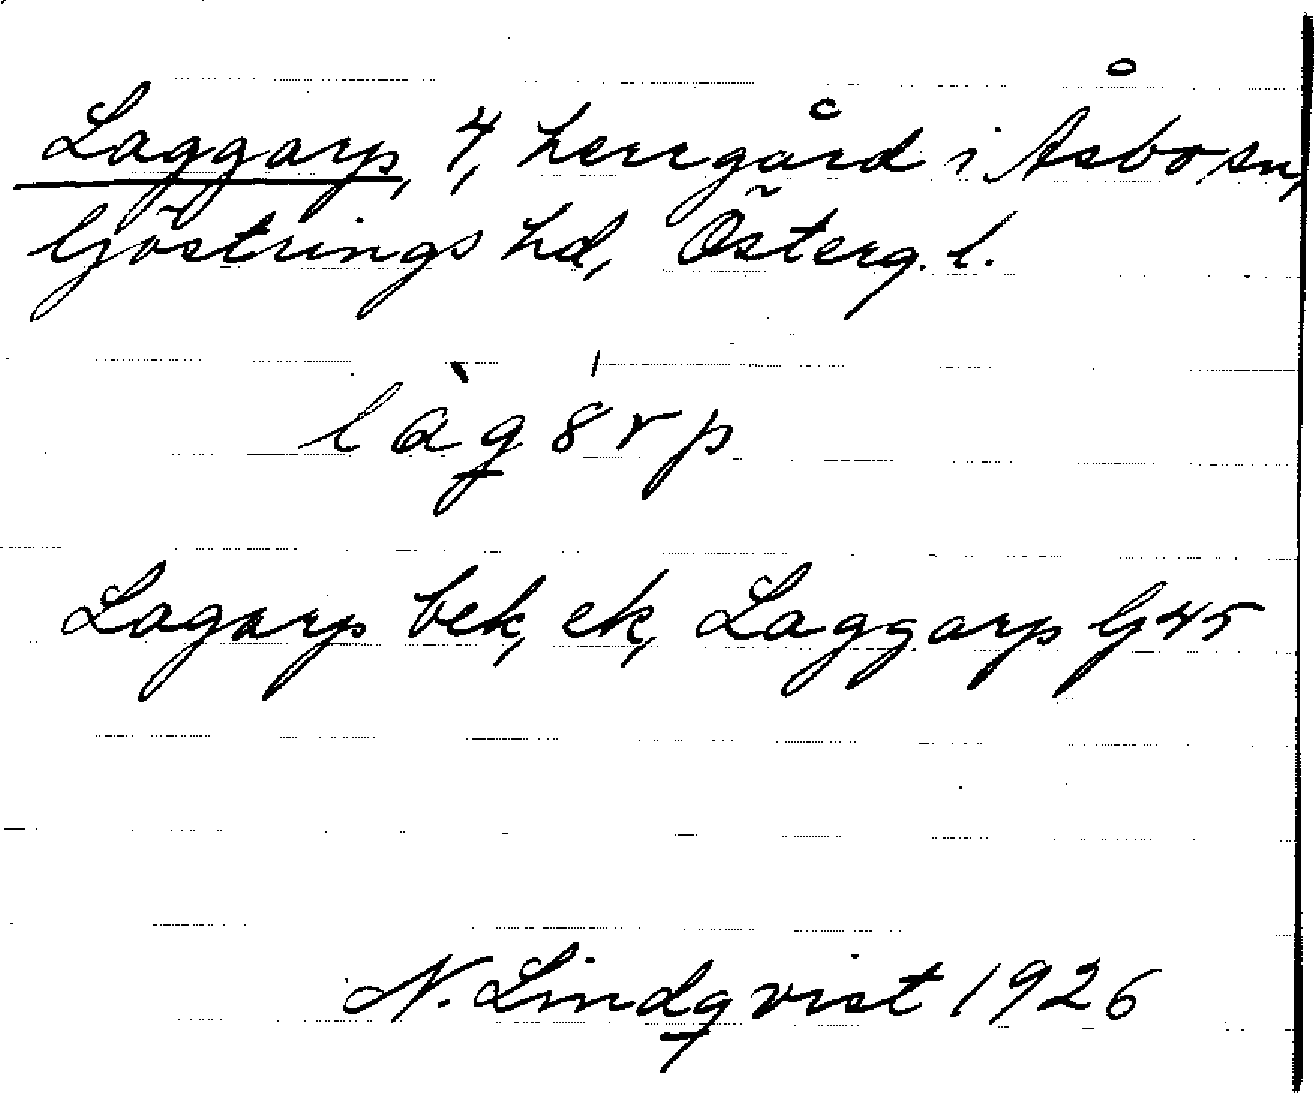 Laggarp, 4, herrgård i Åsbo sn,
Göstrings hd, Österg. l.
làg8rp
Lagarp bek, ek, Laggarp G45
N. Lindqvist 1926